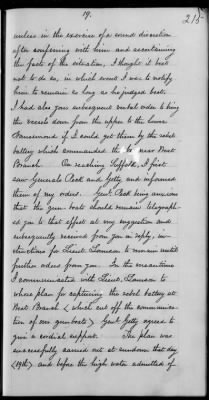 19.
215
unless in the exercise of a sound discretion
after conferring with him and ascertaining
the facts of the situation, I thought it best
not to do so, in which event I was to notify
him to remain as long as he judged best.
I had also your subsequent verbal order to bring
the vessels down from the upper to the lower
Nansemond if I could get them by the rebel
battery which commanded the near West
Branch. On reaching Suffolk, I first
saw Generals Peck and Getty and informed
them of my orders. Genl. Peck being anxious
that the gun boats should remain telegraph-
ed you to that effect at my suggestion and
subsequently received from you in reply, in-
structions for Lieut. Lamson to remain until
further orders from you. In the meantime
I communicated with Lieut. Lamson to
whose plan for capturing the rebel battery at
West Branch (which cut off the communica-
tion of our gunboats) Genl. Getty agreed to
give a cordial support. The plan was
successfully carried out at sundown that day
(19th) and before the high water admitted of